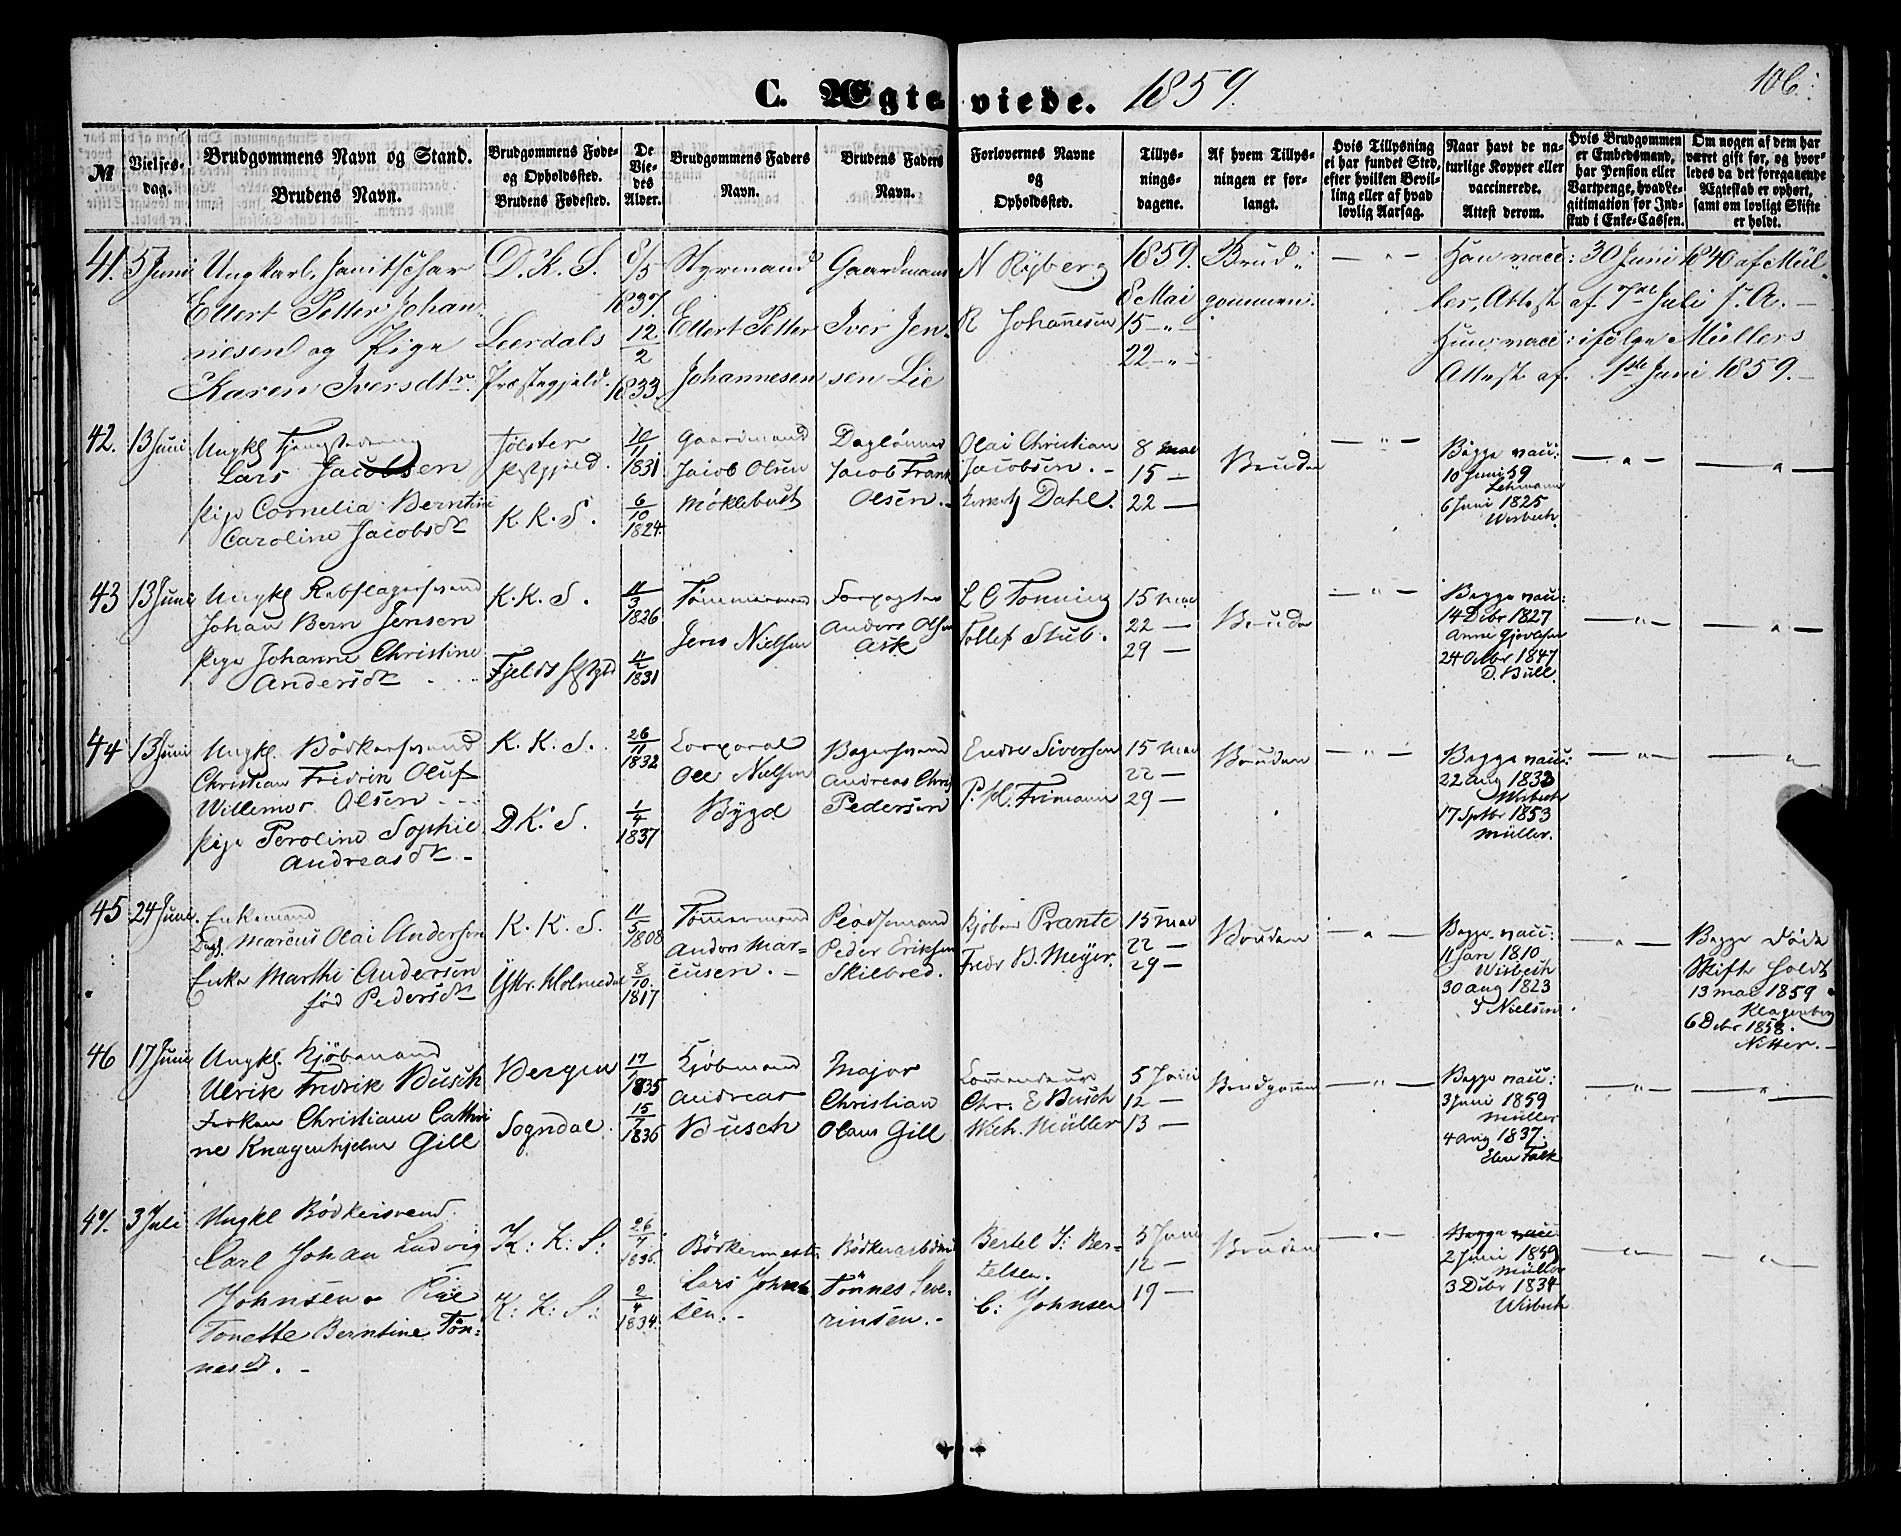 C. Ægteviede. 1859.
106.
№
Vielses-
dag.
Brudgommens Navn og Stand.
Brudens Navn.
Brudgommens Føde-
og Opholdssted.
Brudens Fødested.
De
Vie-
des
Alder.
Brudgommens Faders
Navn.
Brudens Faders
Navn.
Forlovernes Navne
og
Opholdssted.
Tillys-
nings-
dagene.
Af hvem Tillys-
ningen er for-
langt.
Hvis Tillysning
ei har fundet Sted,
efter hvilken Bevil-
ling eller af hvad
lovlig Aarsag.
Naar havt de na-
turlige Kopper eller
vaccinerede.
Attest derom.
Hvis Brudgommen
er Embedsmand,
har Pension eller
Vartpenge, hvad Le-
gitimation for Ind-
skud i Enke-Cassen.
Om nogen af dem har
været gift før, og hvor-
ledes da det foregaaende
Ægteskab er ophørt,
samt om lovligt Skifte
er holdt.
41. 5 Juni
Ungkarl, Janitschar
Ellert Petter Johan-
nesen og Pige
Karen Iversdtr.
D. K. S.
Leerdals
Præstegjeld.
8/5
1837
12/2
1833
Styrmand
Ellert Petter
Johannesen
Gaardmand
Iver Jen-
sen Lie
N Ryberg
R Johannesen
1859.
8 Mai
15 - " -
22 - " -
Brud-
gommen.
- " -
Han vacc: 30 Juni 1840 af Mül-
ler, Attest af 7de Juli s. A. -
Hun vacc: ifølge Müllers
Attest af 1ste Juni 1859. -
42. 13 Juni
Ungkl
Lars Jacobsen
Pige Cornelia Berntine
Caroline Jacobsdtr
Jølster
Pstgjeld.
K. K. S.
10/11
1831
6/10
1824.
Gaardmand
Jacob Olsen
Møklebust
Daglønner
Jacob Frank
Olsen. -
Olai Christian
Jacobsen. -
Dahl.
8 Mai
15 -
22 -
Bruden
- " -
Begge vacc:
10 Juni 59
Lehmann
6 Juni 1825
Wisbech.
- " -
- " -
43 13 Juni
Ungkl Rebslagersvend
Johan Bern Jensen
Pige Johanne Christine
Andersdtr
K. K. S.
11/3
1826
1831
Tømmermand
Jens Nielsen
Forpagter
Anders Olsen
Ask
L O Tonning
Tollef Stub.
15 Mai
22 -
29 -
Bruden
- " -
Begge vacc:
14 Debr 1827
24 Octbr 1847
D. Bull.
- " -
- " -
44 13 Juni
Ungkl. Bødkersvend
Christian Fredrik Oluf
Willemor Olsen
Pige Peroline Sophie
Andreasdtr -
K. K. S.
D K. S.
26/11
1832
1/4
1837
Corporal
Ole Nielsen
Bygd
Bagersvend
Andreas Chris
Pedersen
Endre Siversen
P. M. Frimann
15 Mai
22 -
29 -
Bruden
- " -
Begge vacc:
22 Aug 1833
Wisbech
17 Sptbr 1853
Müller.
- " -
- " -
45 24 Juni.
Enkemand
Dagl. Marcus Olai Andersen
Enke Marthe Andersen
fød Pedersdtr
K. K. S.
Yttr. Holmedal
11/5
1808
8/10
1817
Tømmermand
Anders Mar-
cusen. -
Peder Eriksen
Skilbred.
Kjøbm Prante
Fredr B. Meyer.
15 Mai
22 -
29 -
Bruden
- " -
Begge vacc:
11 Jan 1810
Wisbech
30 Aug 1823
S Nielsen
- " -
Begge døde
Skifte holdt
13 Mai 1859
Klagenberg
6 Debr 1858.
Nitter. -
46 17 Juni
Ungkl. Kjøbmand
Ulrik Fredrik Busch
Frøken Christiane Cathri
ne Knagenhjelm Gill
Bergen
Sogndal.
1835
1836
Kjøbmand
Andreas
Busch
Major
Christian
Olaus Gill
Commandeur
Chr. E Busch
Wilh. Müller
5 Juni
12 -
13 -
Brudgommen
- " -
Begge vacc:
3 Juni 1859
Müller
4 Aug 1837.
Falk
- " -
- " -
47. 3 Juli
Ungkl Bødkersvend.
Carl Johan Ludvig
Johnsen o Pige
Tonette Berntine Tøn-
nesdt. -
K: K: S:
K: K: S:
1836
2/4
1834.
Bødkermest.
Lars John-
sen. -
Bødkerarbeider
Tønnes Seve-
rinsen. -
Bertel J: Ber-
telsen.
C: Johnsen
5 Juni
12 -
19 -
Bruden
- " -
Begge vacc
2 Juni 1859
Müller
3 Debr 1834
Wisbech
- " -
- " -